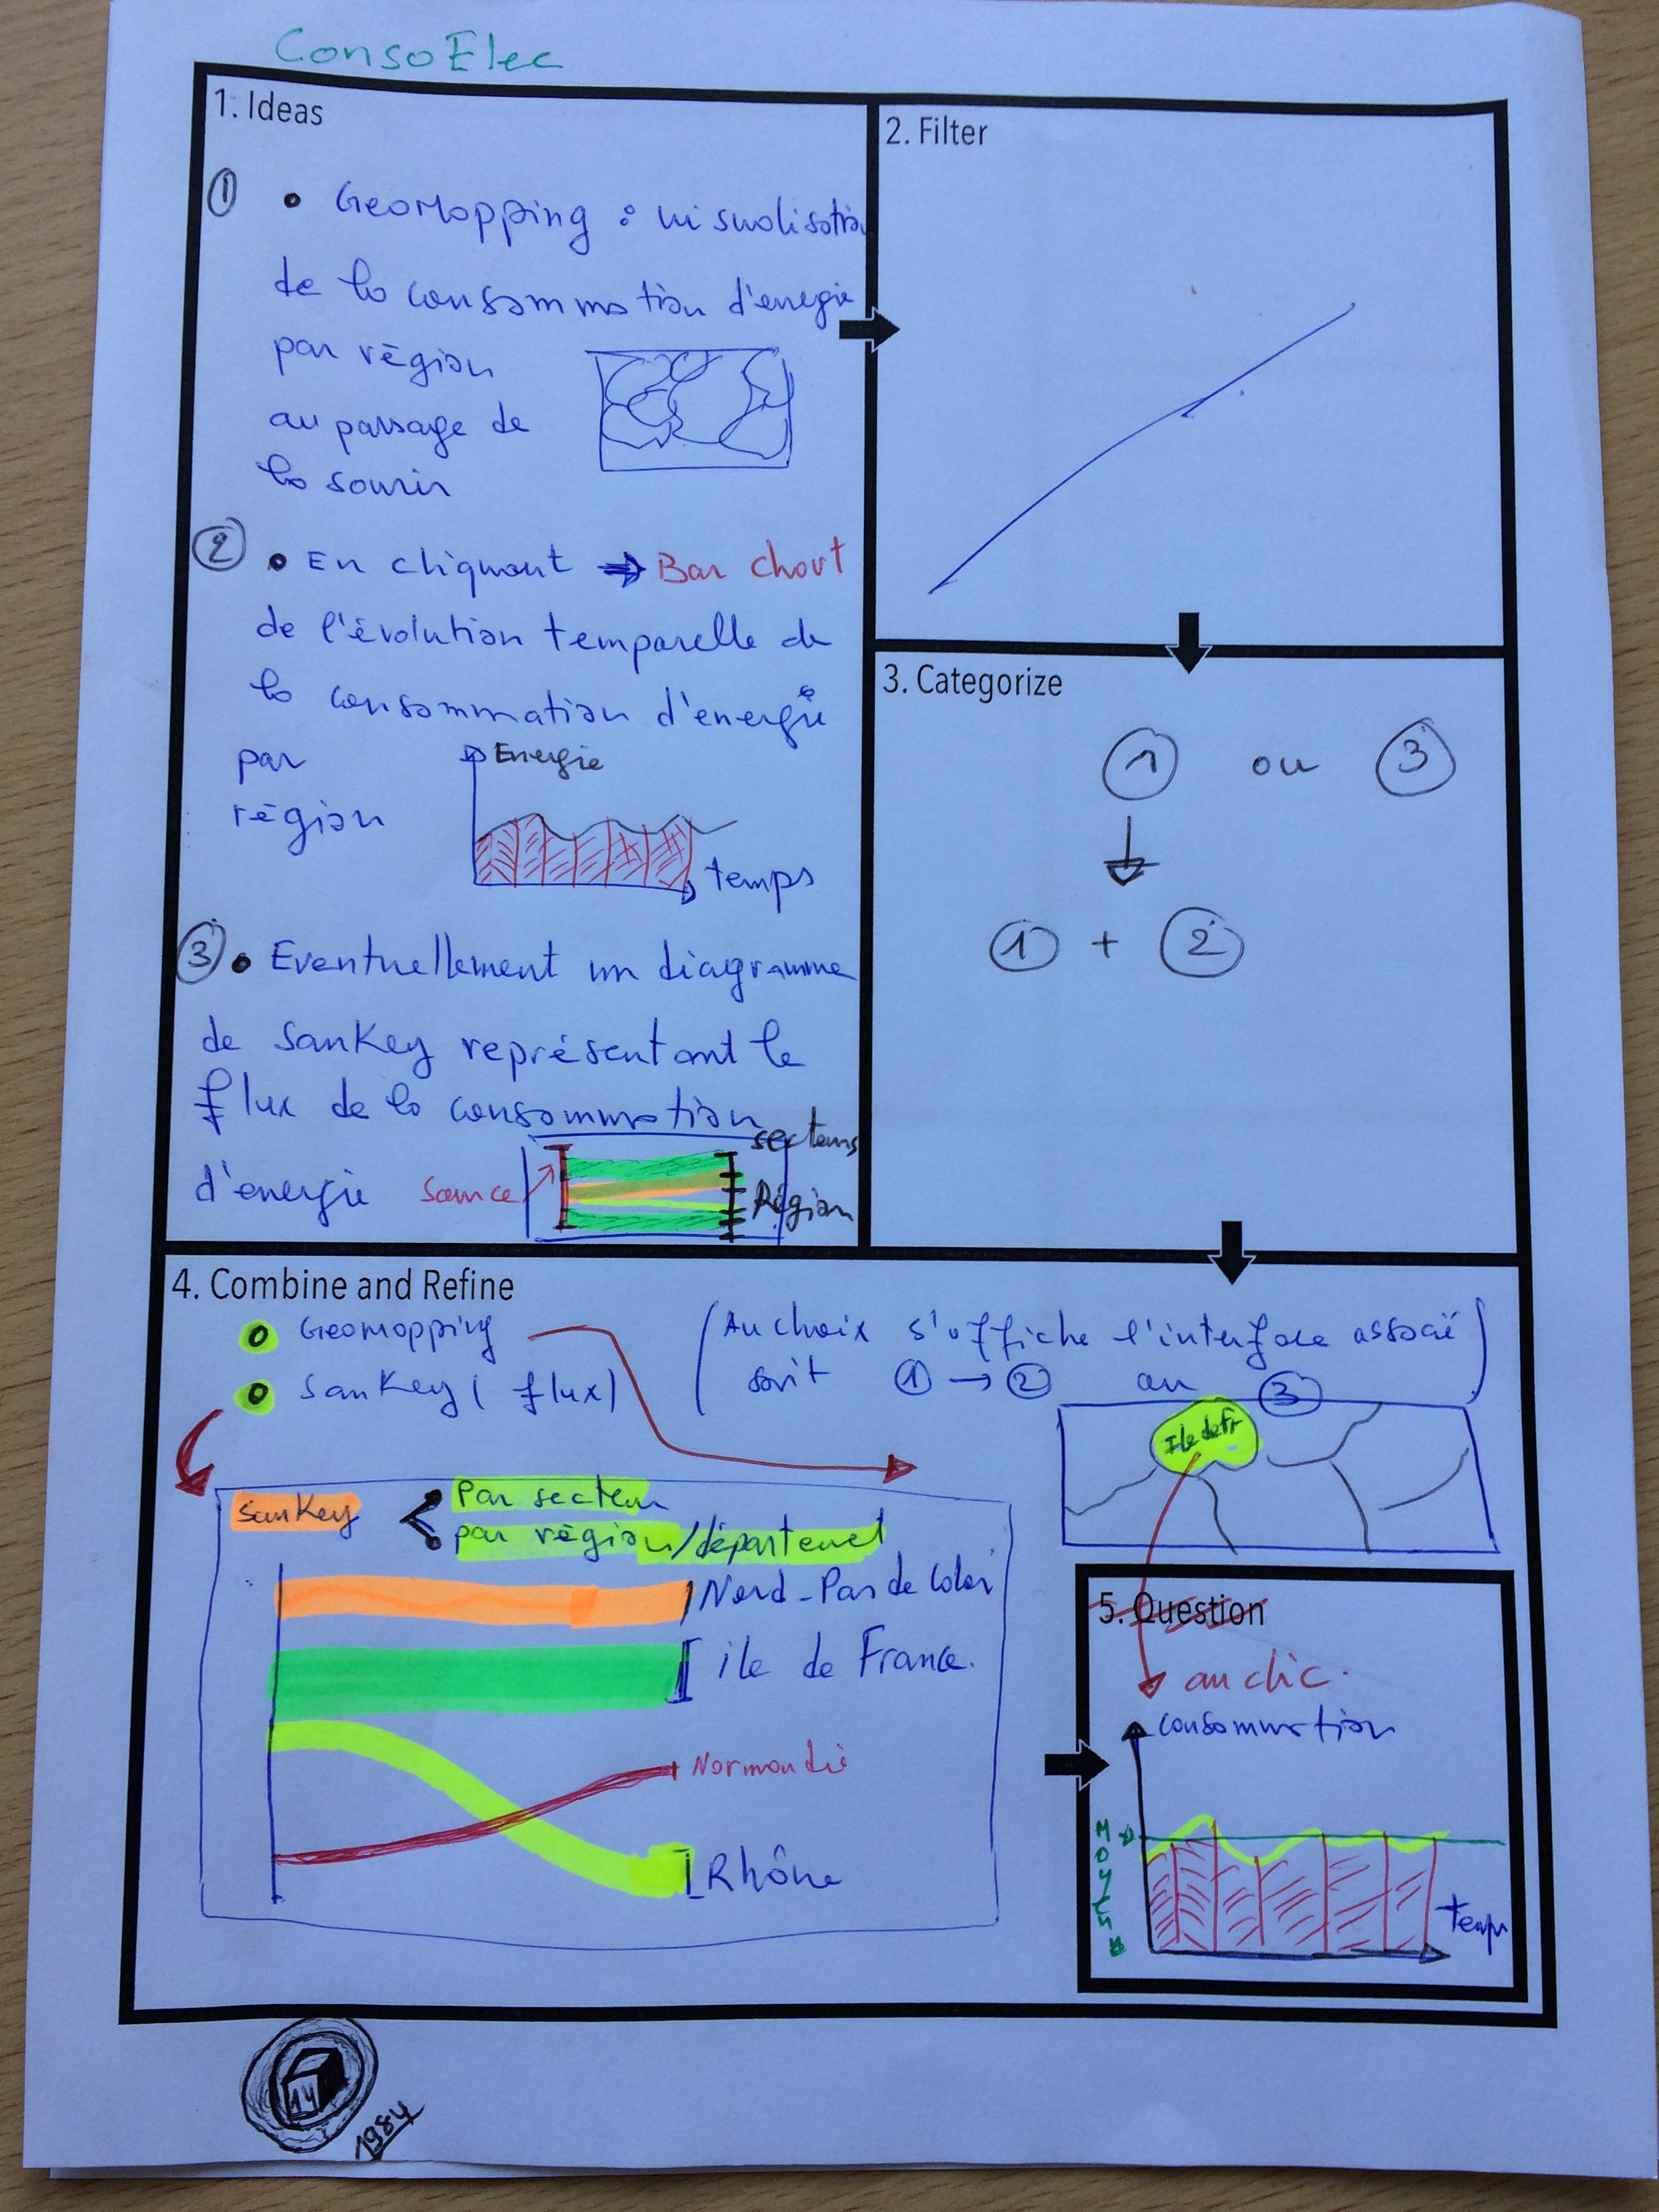 ConsoElec
1. Ideas
① • GeoMapping : visualisation
de la consommation d'energie
par région
au passage de
la souris
② • En cliquant ⇒ Bar chart
de l'évolution temporelle de
la consommation d'energie
par
région
Energie
temps
③ • Eventuellement un diagramme
de Sankey représentant le
flux de la consommation
d'energie
Source
secteurs
Région
2. Filter
3. Categorize
① ou ③
① + ②
4. Combine and Refine
Geomapping
Sankey ( flux)
(Au choix s'affiche l'interface associé
soit ① → ② ou ③)
Ile de Fr
Sankey
Par secteur
par région/départemet
Nord-Pas de Calai
ile de France.
Normandie
Rhône
5. Question
au clic.
consommation
Moyenne
temps
14
1984